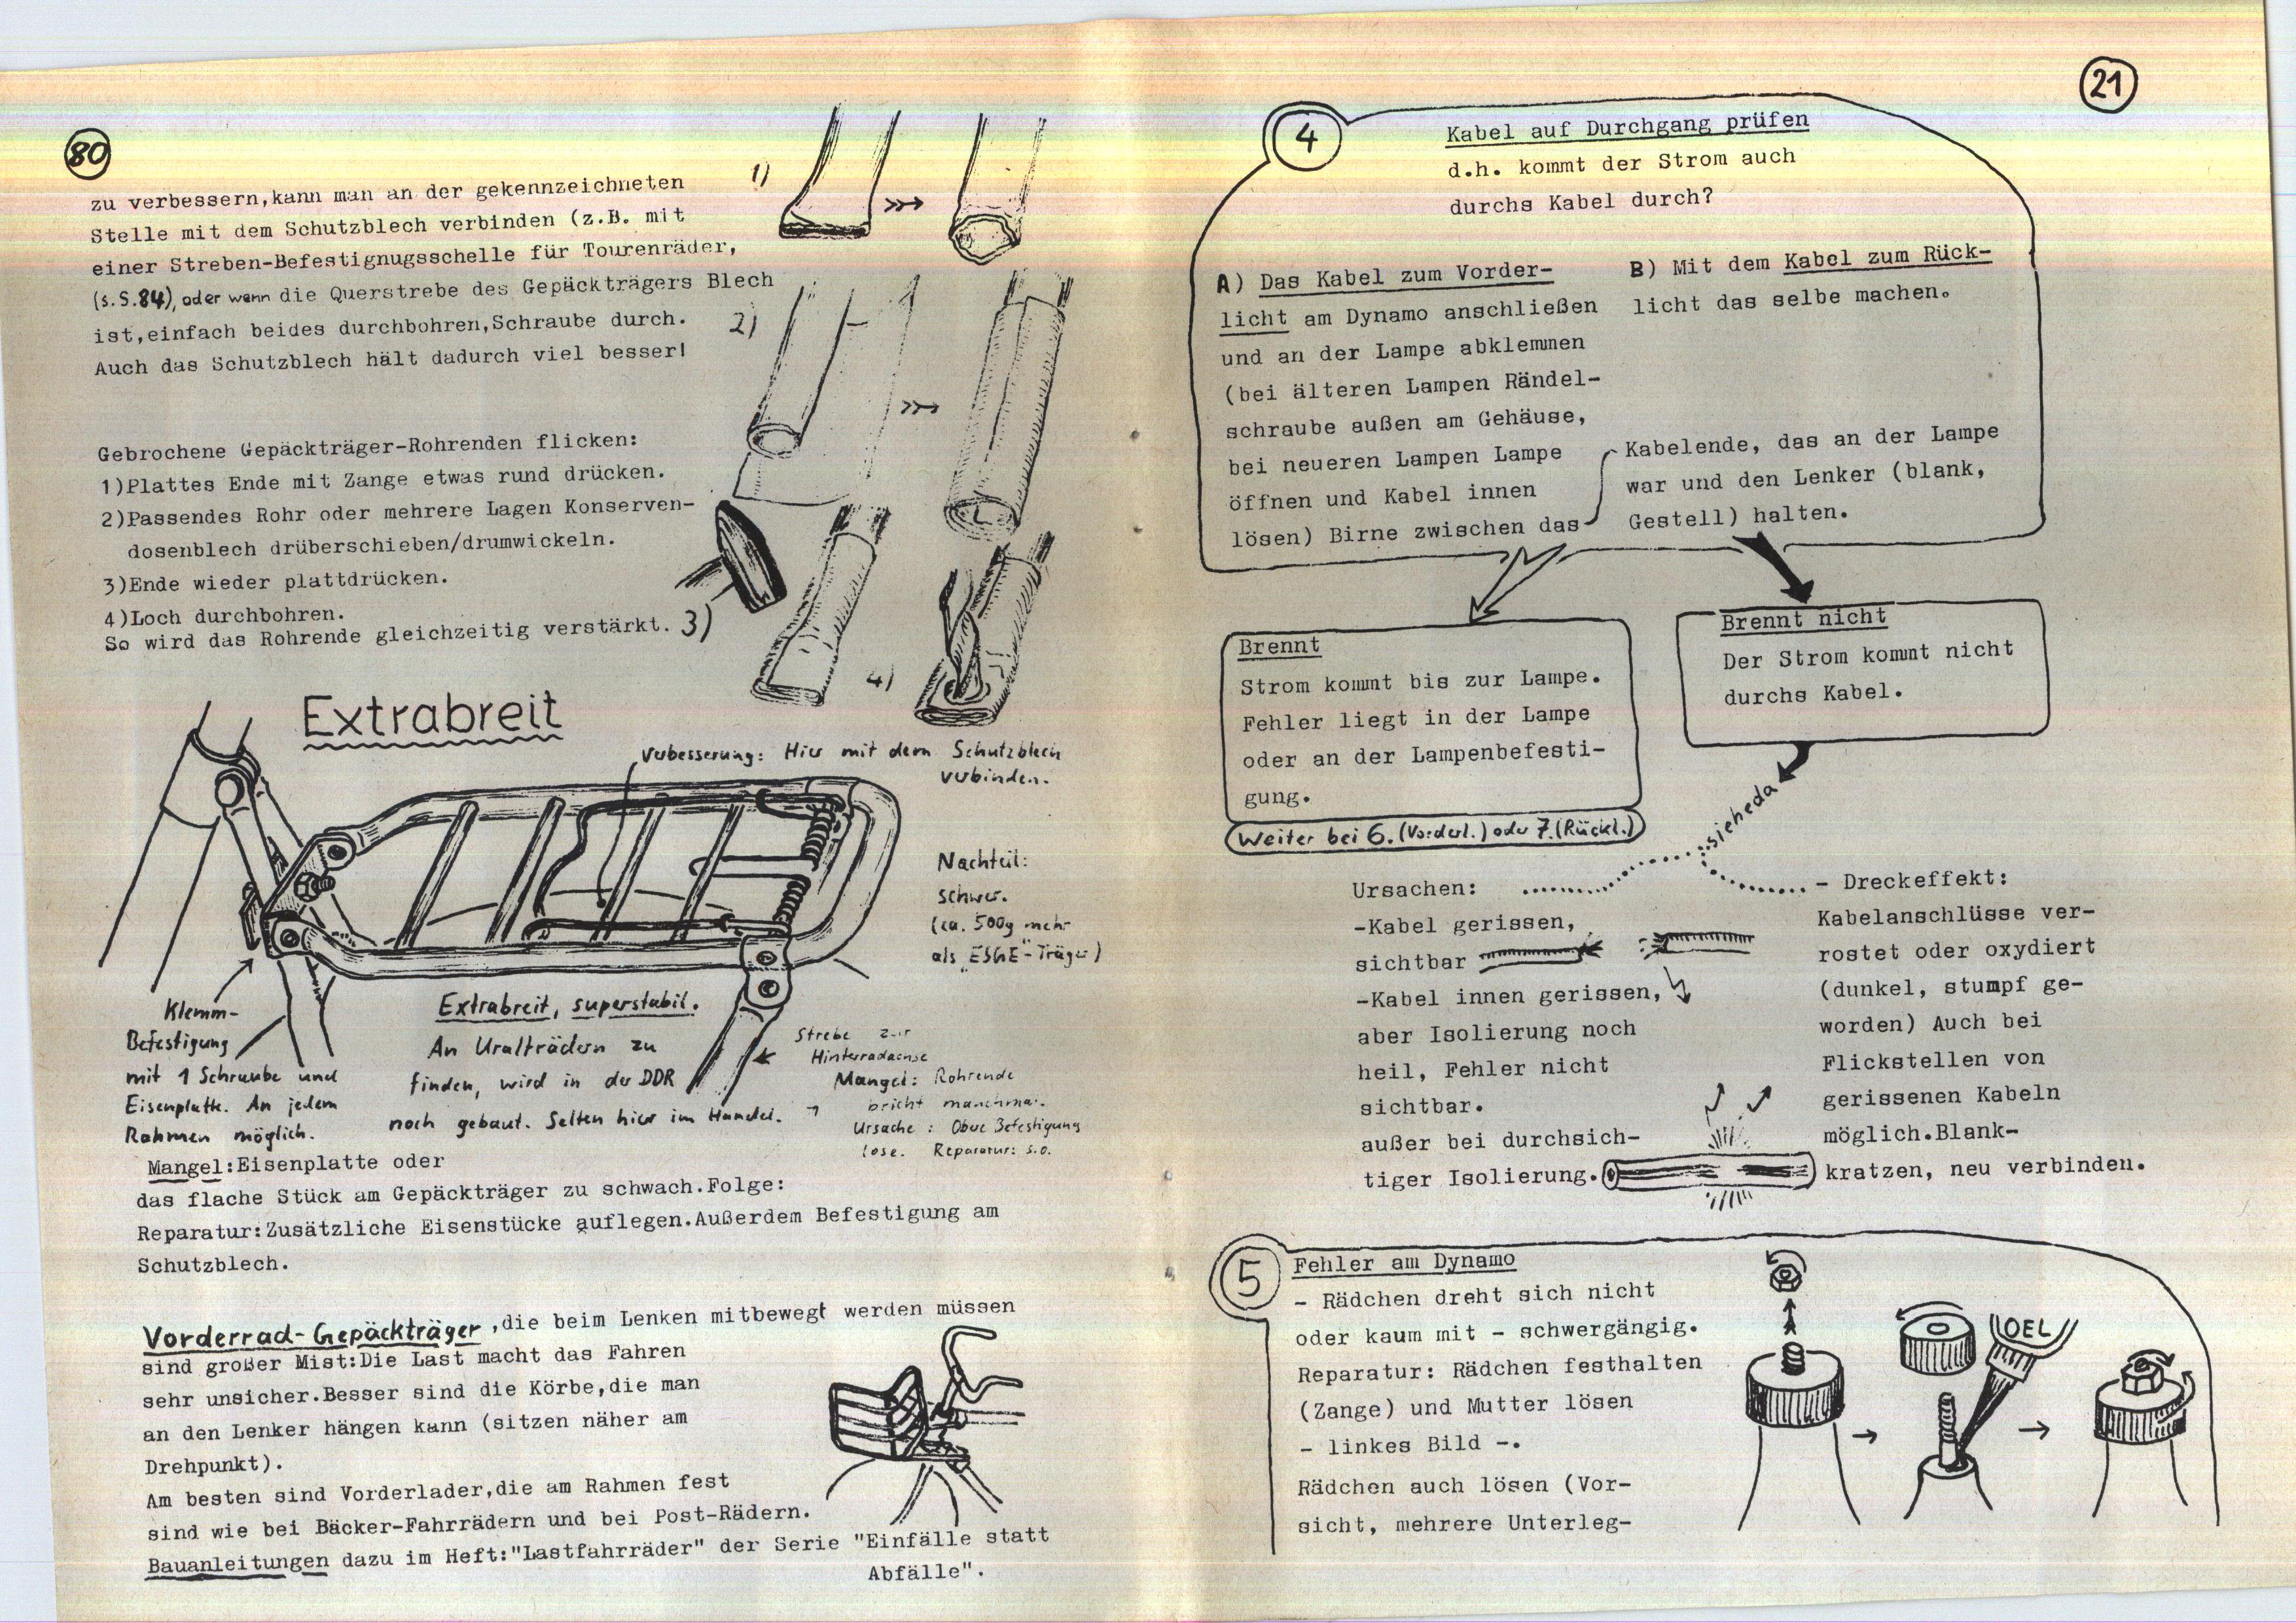 80
zu verbessern,kann man an der gekennzeichneten
Stelle mit dem Schutzblech verbinden (z.B. mit
einer Streben-Befestignugsschelle für Tourenräder,
(s.S.84), oder wenn die Querstrebe des Gepäckträgers Blech
ist,einfach beides durchbohren,Schraube durch.
Auch das Schutzblech hält dadurch viel besser!
1)
2)
Gebrochene Gepäckträger-Rohrenden flicken:
1)Plattes Ende mit Zange etwas rund drücken.
2)Passendes Rohr oder mehrere Lagen Konserven-
dosenblech drüberschieben/drumwickeln.
3)Ende wieder plattdrücken.
4)Loch durchbohren.
So wird das Rohrende gleichzeitig verstärkt.
3)
4)
Extrabreit
Verbesserung: Hier mit dem Schutzblech
verbinden.
Nachteil:
schwer.
(ca. 500g mehr
als "ESGE"-Träger)
Klemm-
Befestigung
mit 1 Schraube und
Eisenplatte. An jedem
Rahmen möglich.
Extrabreit, superstabil.
An Uralträdern zu
finden, wird in der DDR
noch gebaut. Selten hier im Handel.
Strebe zur
Hinterradachse
Mangel: Rohrende
bricht manchmal.
Ursache: Obere Befestigung
lose. Reparatur: s.o.
Mangel:Eisenplatte oder
das flache Stück am Gepäckträger zu schwach.Folge:
Reparatur:Zusätzliche Eisenstücke auflegen.Außerdem Befestigung am
Schutzblech.
Vorderrad-Gepäckträger,die beim Lenken mitbewegt werden müssen
sind großer Mist:Die Last macht das Fahren
sehr unsicher.Besser sind die Körbe,die man
an den Lenker hängen kann (sitzen näher am
Drehpunkt).
Am besten sind Vorderlader,die am Rahmen fest
sind wie bei Bäcker-Fahrrädern und bei Post-Rädern.
Bauanleitungen dazu im Heft:"Lastfahrräder" der Serie "Einfälle statt
Abfälle".
21
4
Kabel auf Durchgang prüfen
d.h. kommt der Strom auch
durchs Kabel durch?
A) Das Kabel zum Vorder-
licht am Dynamo anschließen
und an der Lampe abklemmen
(bei älteren Lampen Rändel-
schraube außen am Gehäuse,
bei neueren Lampen Lampe
öffnen und Kabel innen
lösen) Birne zwischen das
B) Mit dem Kabel zum Rück-
licht das selbe machen.
Kabelende, das an der Lampe
war und den Lenker (blank,
Gestell) halten.
Brennt
Strom kommt bis zur Lampe.
Fehler liegt in der Lampe
oder an der Lampenbefesti-
gung.
Weiter bei 6.(Vorderl.) oder 7.(Rückl.)
Brennt nicht
Der Strom kommt nicht
durchs Kabel.
sieheda
Ursachen:
-Kabel gerissen,
sichtbar
-Kabel innen gerissen,
aber Isolierung noch
heil, Fehler nicht
sichtbar.
außer bei durchsich-
tiger Isolierung.
- Dreckeffekt:
Kabelanschlüsse ver-
rostet oder oxydiert
(dunkel, stumpf ge-
worden) Auch bei
Flickstellen von
gerissenen Kabeln
möglich.Blank-
kratzen, neu verbinden.
5
Fehler am Dynamo
- Rädchen dreht sich nicht
oder kaum mit - schwergängig.
Reparatur: Rädchen festhalten
(Zange) und Mutter lösen
- linkes Bild -.
Rädchen auch lösen (Vor-
sicht, mehrere Unterleg-
OEL